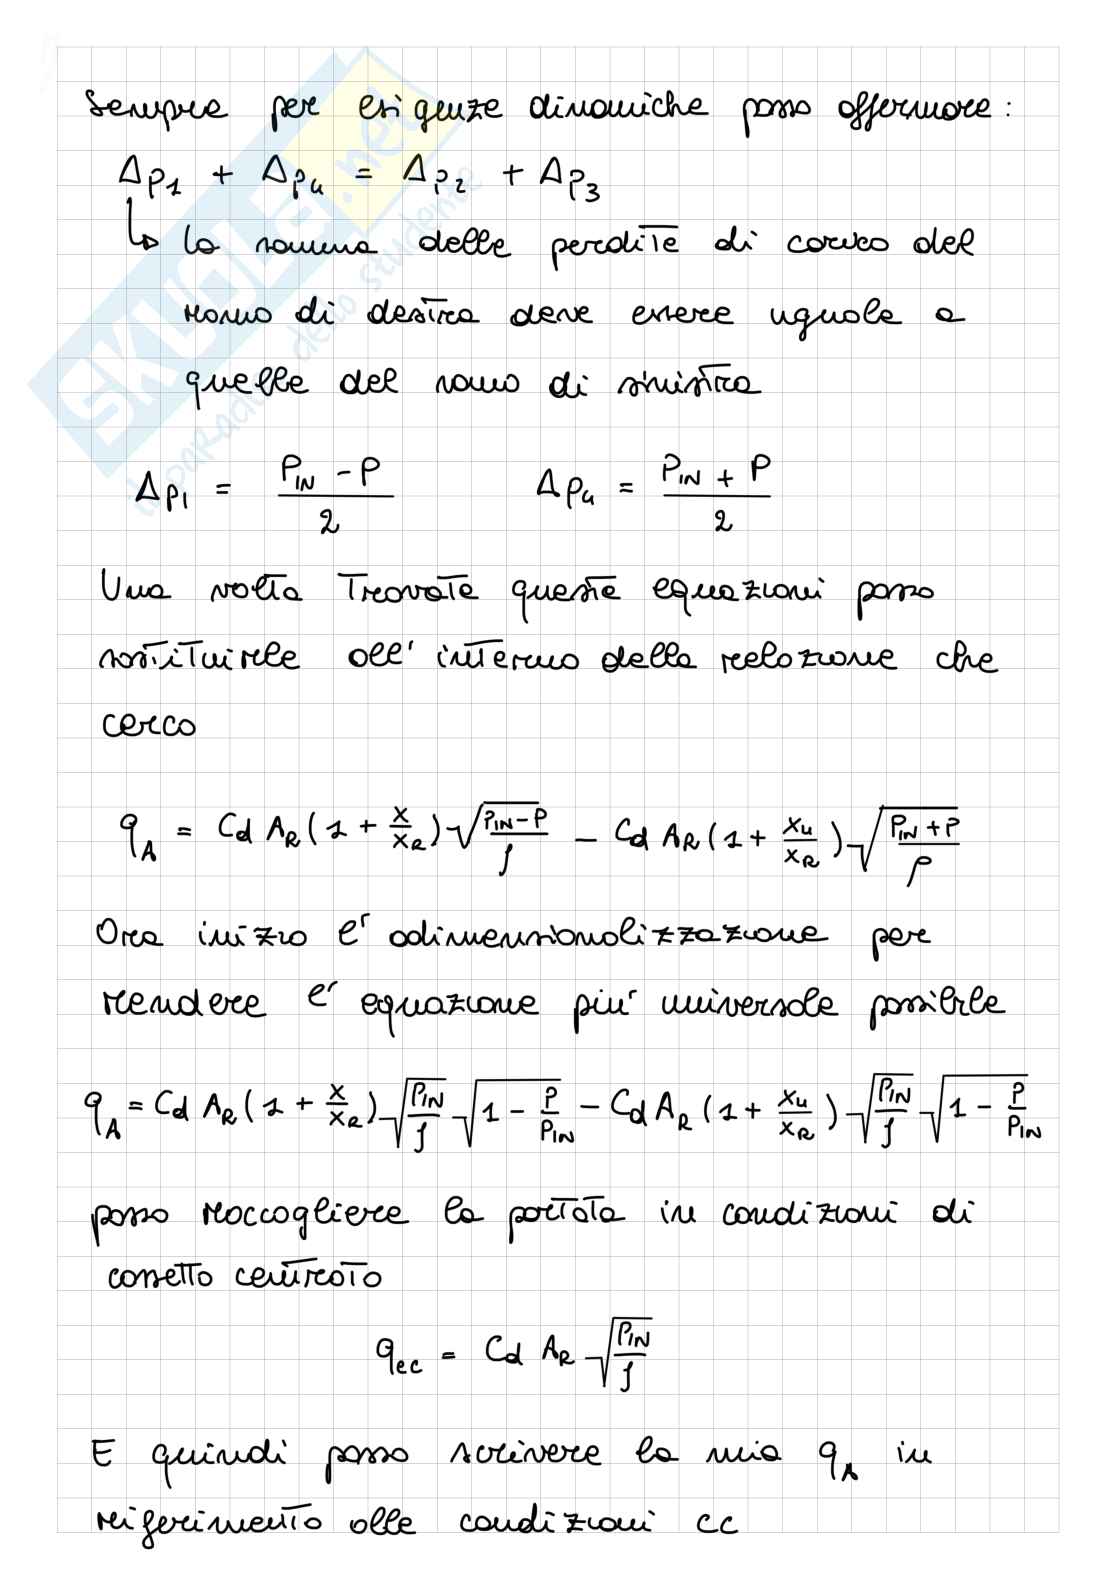 Sempre per esigenze dinamiche posso affermare:
Δp1 + Δp4 = Δp2 + Δp3
↳ la somma delle perdite di carico del
ramo di destra deve essere uguale a
quelle del ramo di sinistra
Δp1 = (PIN - P)/2 Δp4 = (PIN + P)/2
Una volta trovate queste equazioni posso
sostituirle all'interno della relazione che
cerco
qA = Cd AR (1 + x/xR) √((PIN - P)/ρ) - Cd AR (1 + x4/xR) √((PIN + P)/ρ)
Ora inizio l'adimensionalizzazione per
rendere l'equazione piu' universale possibile
qA = Cd AR (1 + x/xR) √(PIN/ρ) √(1 - P/PIN) - Cd AR (1 + x4/xR) √(PIN/ρ) √(1 - P/PIN)
posso raccogliere la portata in condizioni di
cassetto centrato
qec = Cd AR √(PIN/ρ)
E quindi posso scrivere la mia qA in
riferimento alle condizioni cc
SKUOLA.net
il paradiso dello studente